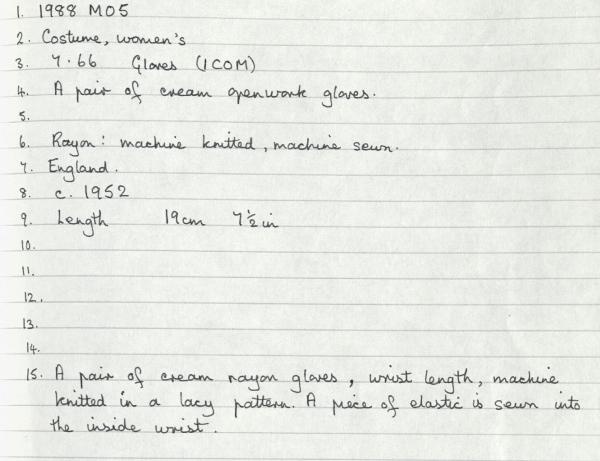 1. 1988 M05
2. Costume, women's
3. 7.66 Gloves (ICOM)
4. A pair of cream openwork gloves.
5.
6. Rayon: machine knitted, machine sewn.
7. England.
8. c. 1952
9. Length 19cm 7½in
10.
11.
12.
13.
14.
15. A pair of cream rayon gloves, wrist length, machine
knitted in a lacy pattern. A piece of elastic is sewn into
the inside wrist.